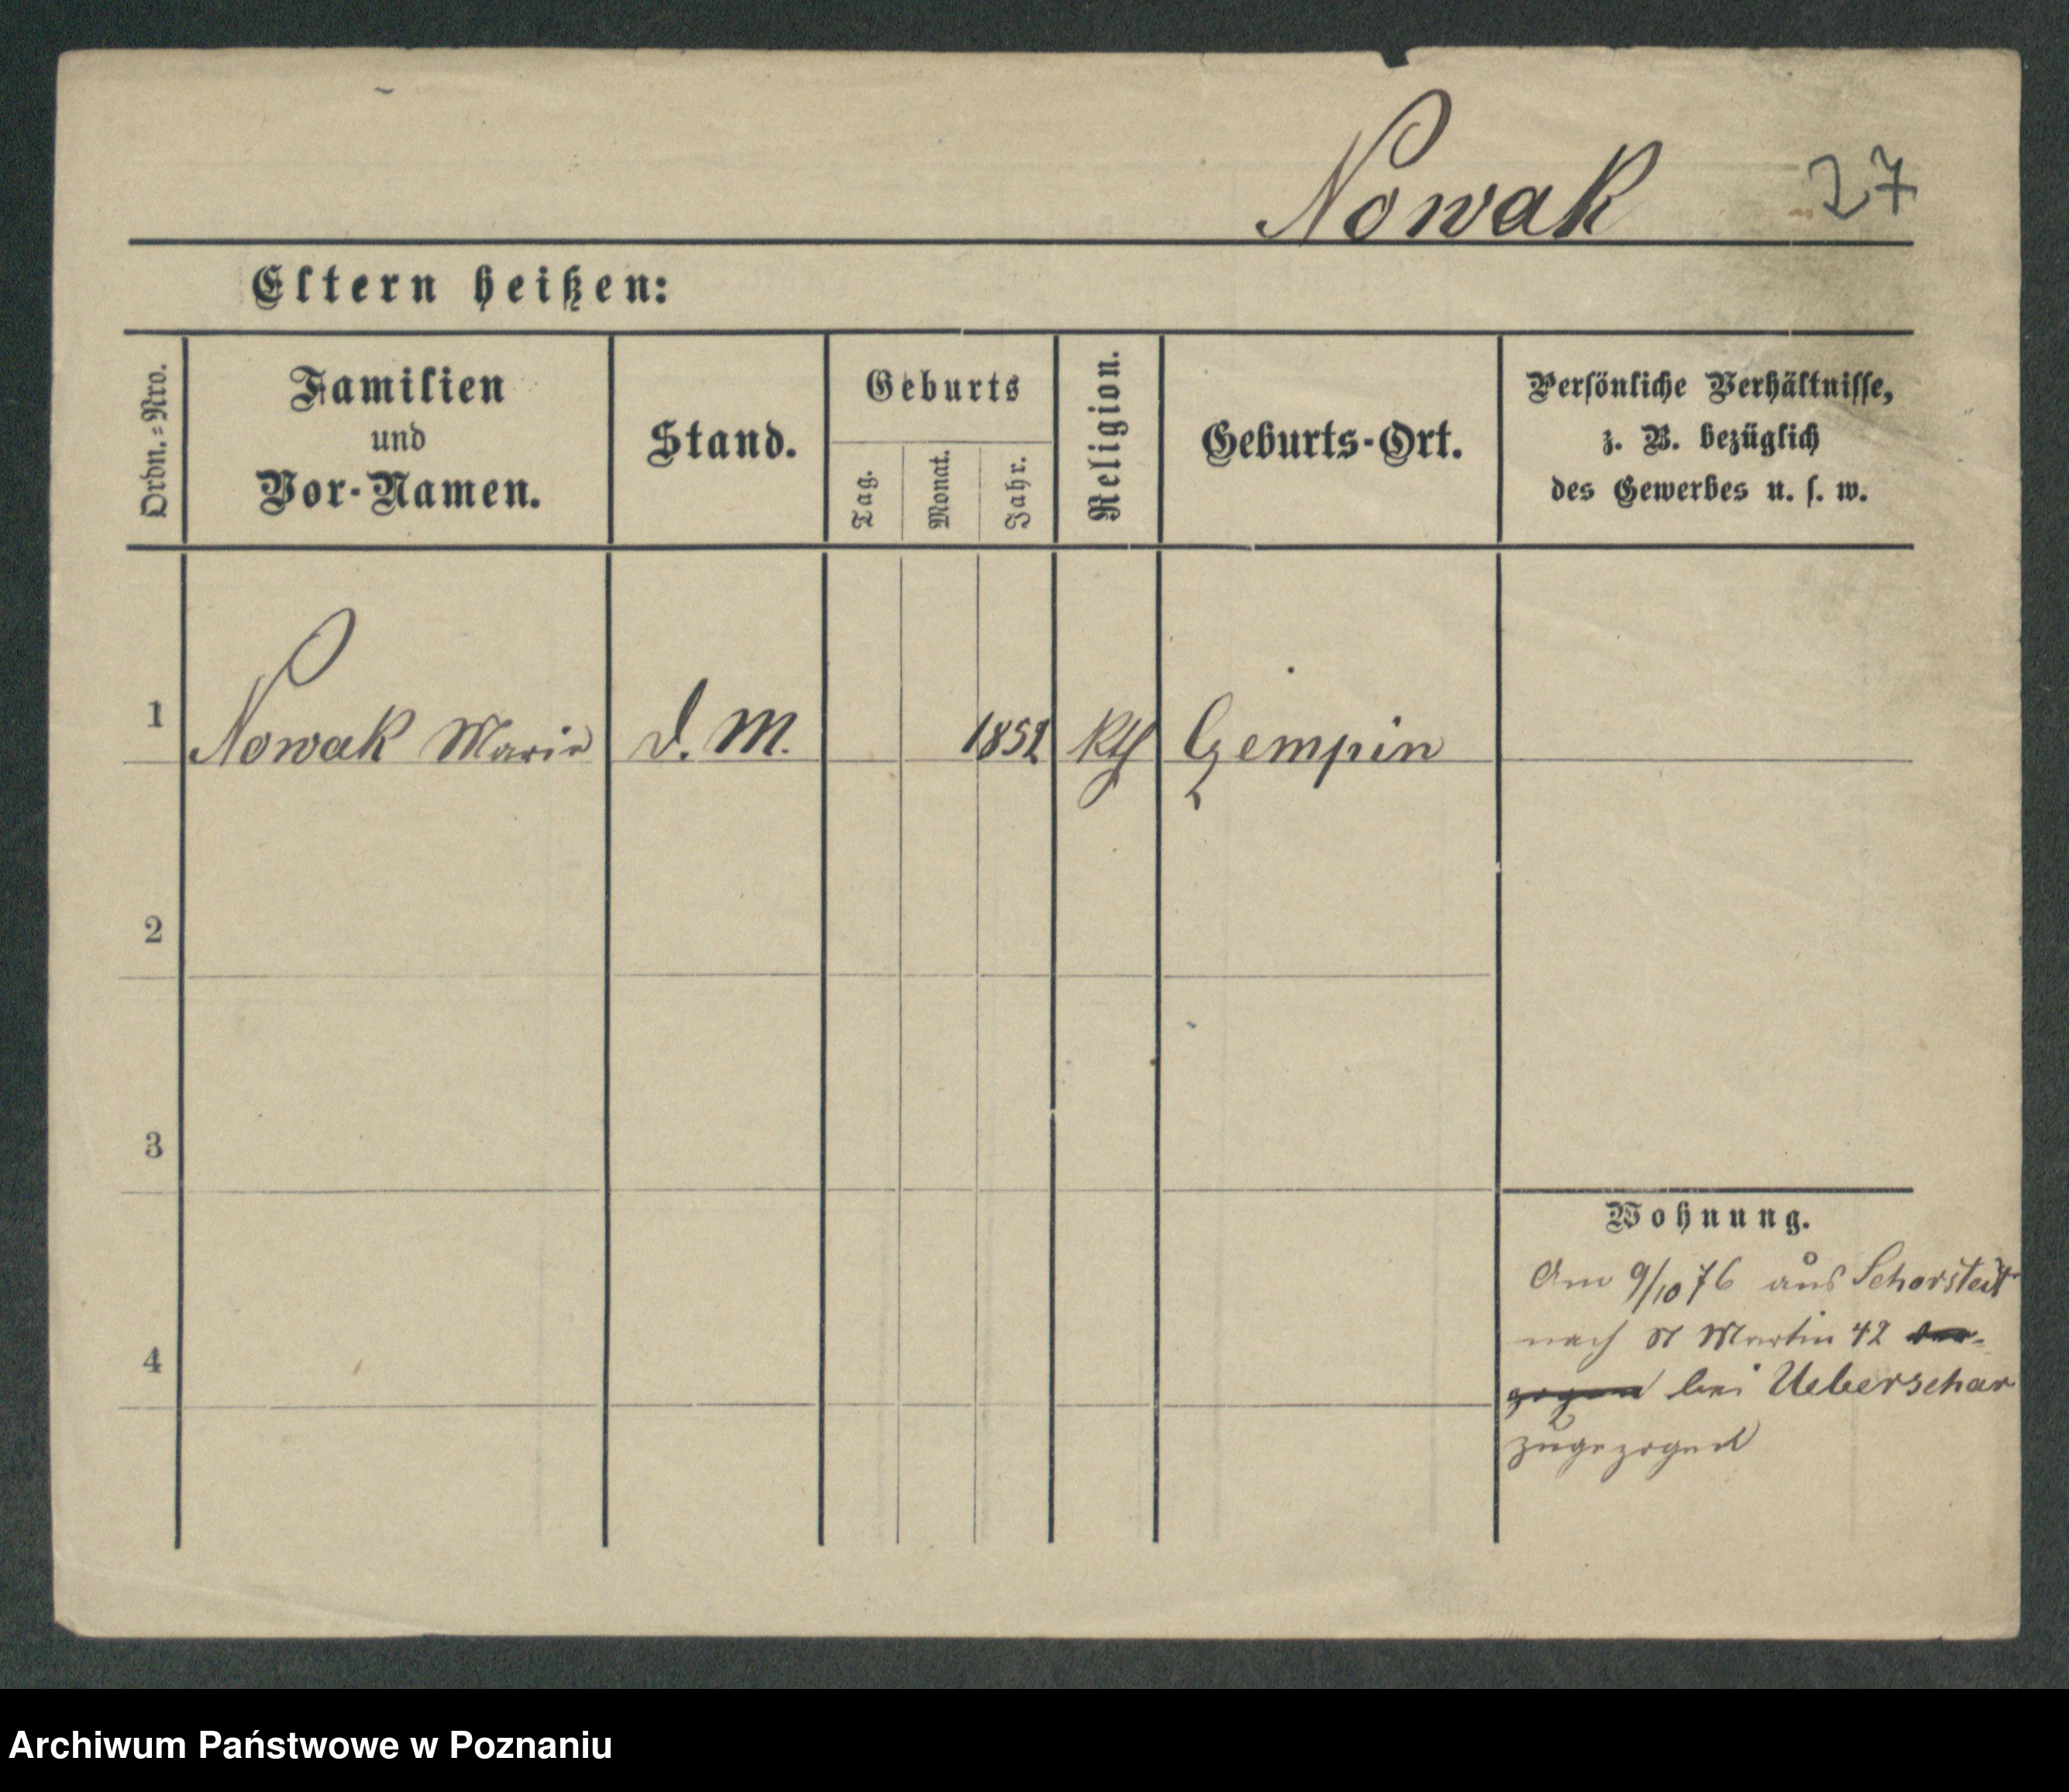 Nowak 27
Eltern heißen:
Ordn.=Nro.
Familien
und
Vor-Namen.
Stand.
Geburts
Tag.
Monat.
Jahr.
Religion.
Geburts-Ort.
Persönliche Verhältnisse,
z. B. bezüglich
des Gewerbes u. s. w.
1 Nowak Marie d. M. 1852 Kth Gempin
2
3
4
Wohnung.
Am 9/10 76 aus
nach St Martin 42
bei Ueberschar
zugezogen
Archiwum Państwowe w Poznaniu